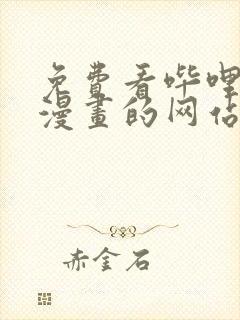 免费看哔哩
漫畫的网估
赤金石